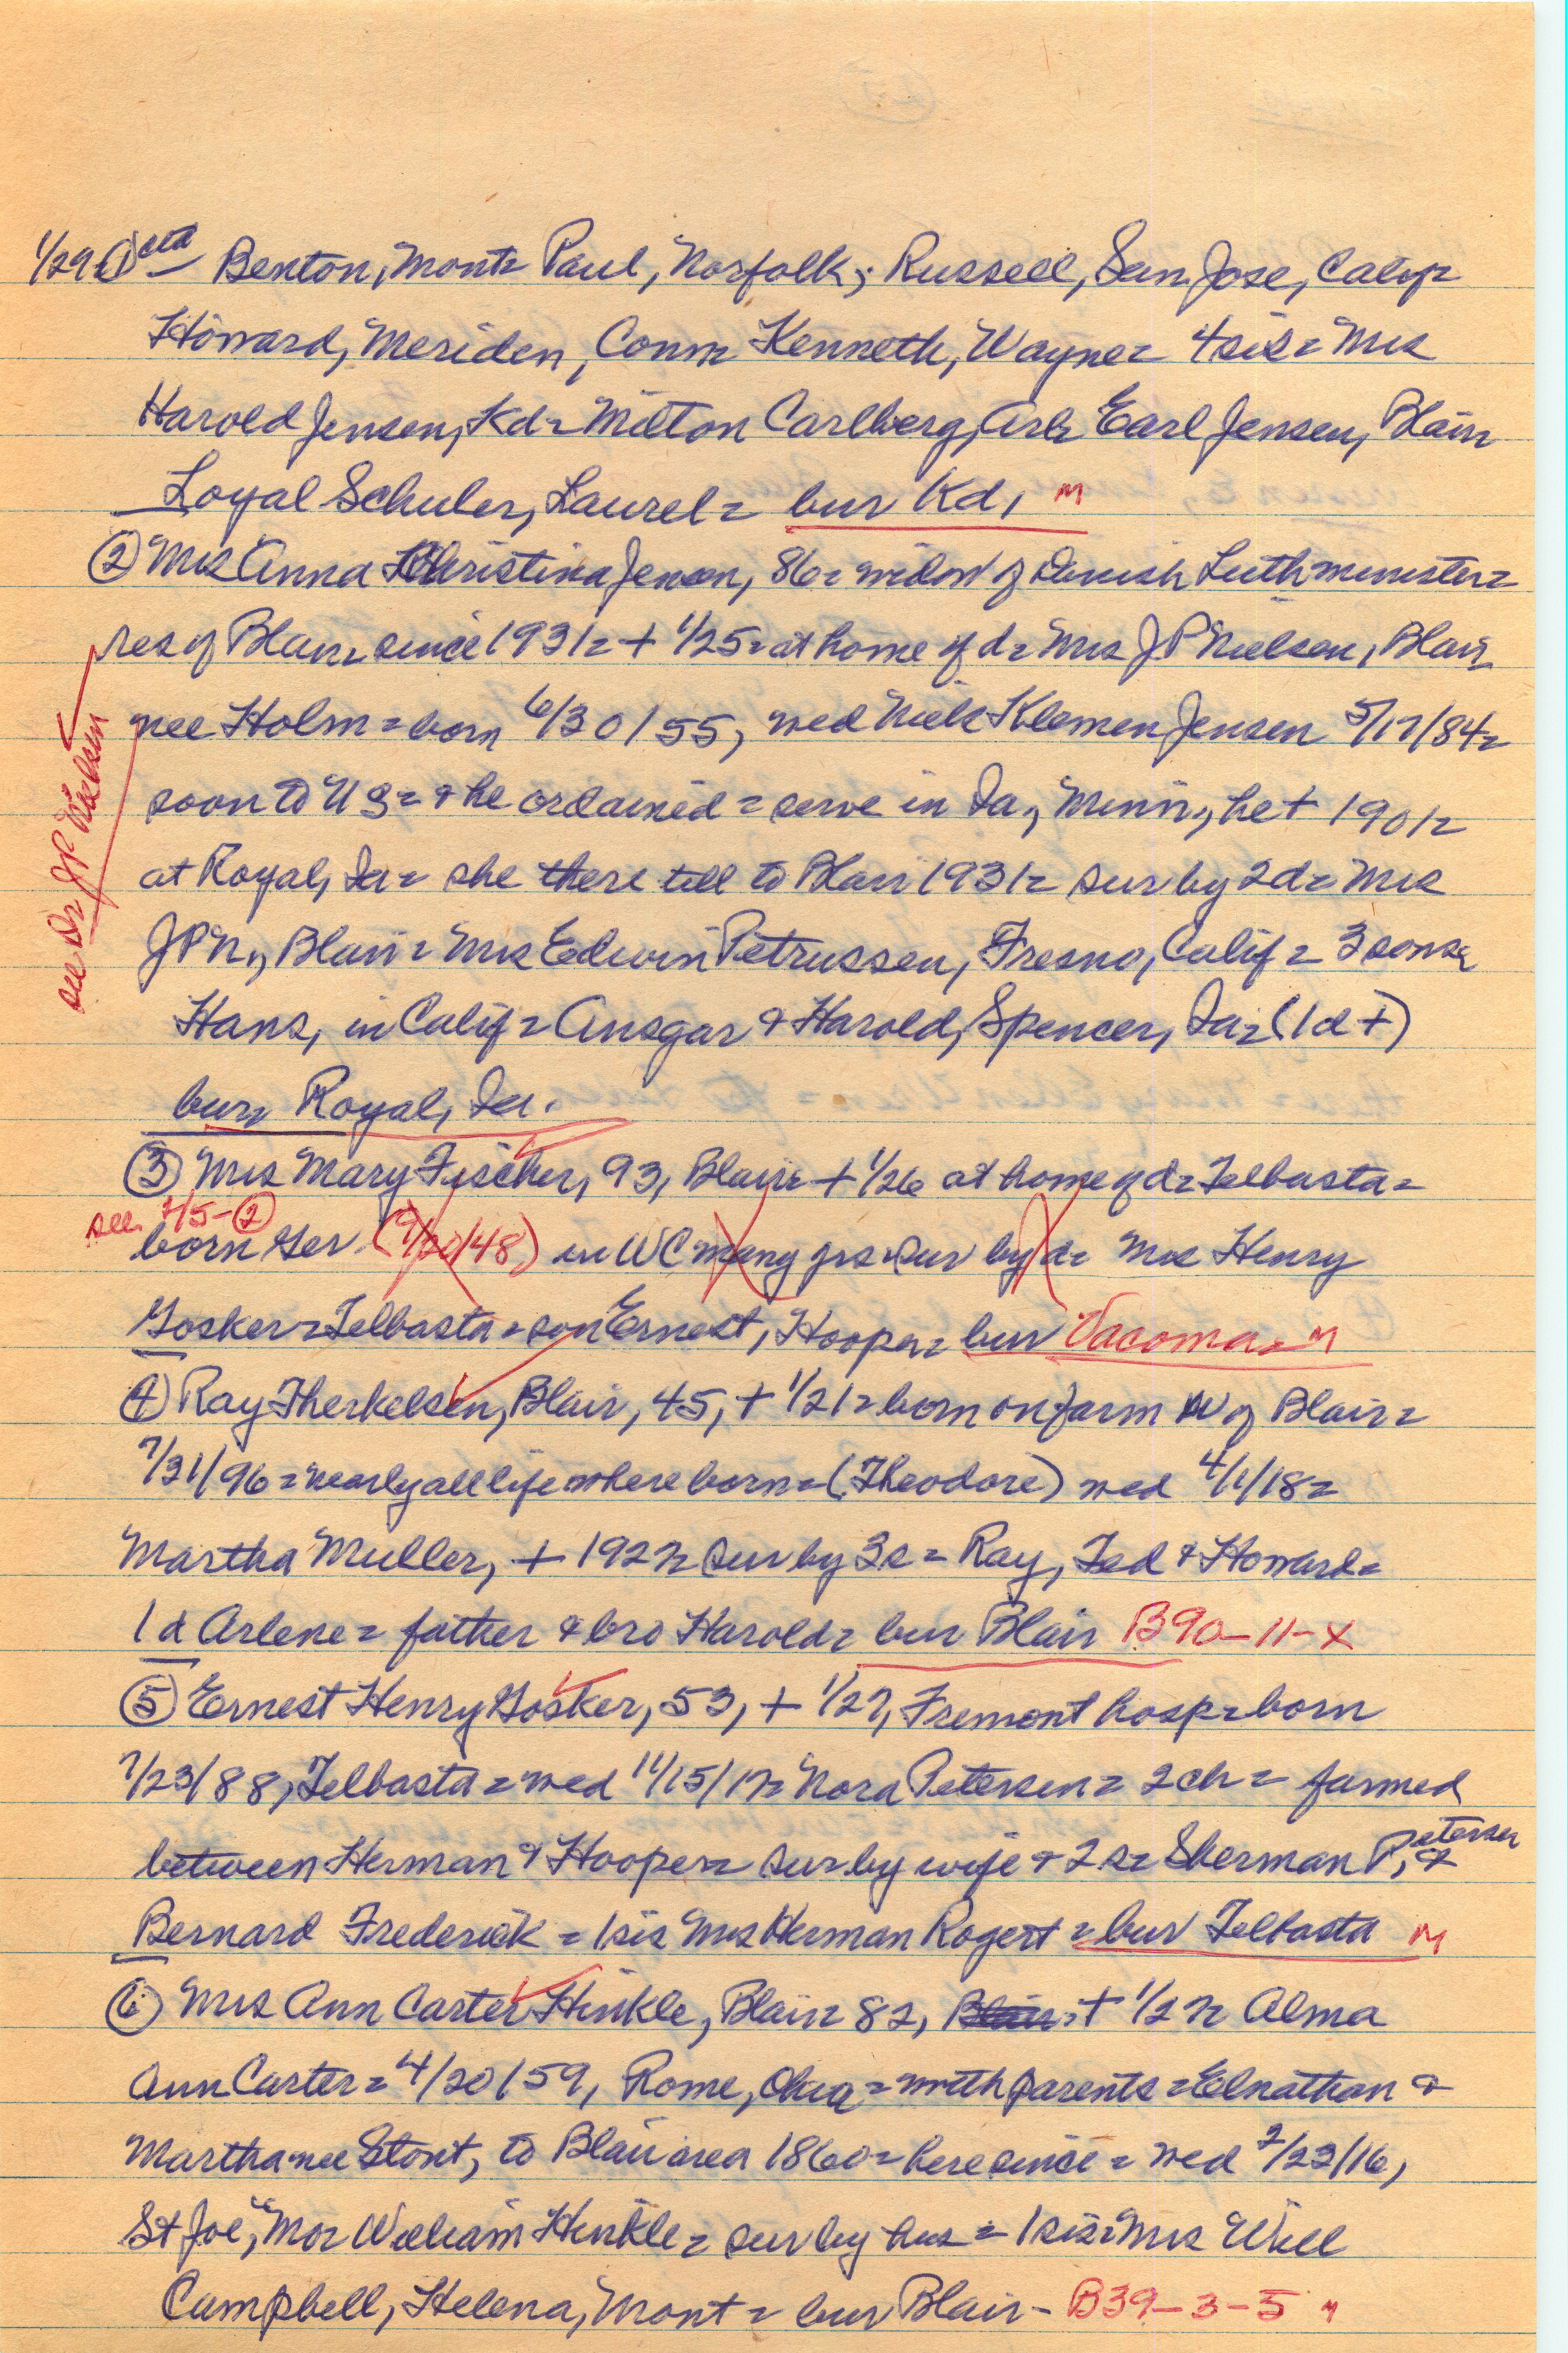 1/29 ① ctd Benton, Mont= Paul, Norfolk; Russell, San Jose, Calif=
Howard, Meriden, Conn= Kenneth, Wayne= 4 sis= Mrs
Harold Jensen, Kd= Milton Carlberg, Arl= Earl Jensen, Blair=
Loyal Schuler, Laurel= bur Kd, M
② Mrs Anna Christina Jensen, 86= widow of Danish Luth minister=
res of Blair= since 1931= + 1/25= at home of d= Mrs J P Nielsen, Blair
nee Holm= born 6/30/55, wed Niels Klemen Jensen 5/17/84=
soon to US= & he ordained= serve in Ia, Minn, he + 1901=
at Royal, Ia= she there till to Blair 1931= sur by 2d= Mrs
see Dr JP Nielsen
JPN, Blair= Mrs Edwin Petrussen, Fresno, Calif= 3 sons=
Hans, in Calif= Ansgar & Harold, Spencer, Ia= (1d+)
bur= Royal, Ia.
③ Mrs Mary Fischer, 93, Blair= + 1/26 at home of d= Telbasta=
see 2/5-②
born Ger (9/20/48) in WC many yrs= sur by d= Mrs Henry
Gosker= Telbasta= son Ernest, Hooper= bur Vacoma= M
④ Ray Therkelsen, Blair, 45, + 1/21= born on farm W of Blair=
7/31/96= nearly all life where born= (Theodore) wed 4/1/18=
Martha Muller, + 1927= sur by 3s= Ray, Ted & Howard=
1d Arlene= father & bro Harold= bur Blair B90-11-X
⑤ Ernest Henry Gosker, 53, + 1/27, Fremont hosp= born
7/23/88, Telbasta= wed 11/15/17= Nora Petersen= 2ch= farmed
between Herman & Hooper= sur by wife & 2s= Sherman Petersen &
Bernard Frederick= 1 sis Mrs Herman Rogert= bur Telbasta M
⑥ Mrs Ann Carter Hinkle, Blair= 82, Blair + 1/27= Alma
Ann Carter= 4/20/59, Rome, = with parents= Elnathan &
Martha nee Stout, to Blair area 1860= here since= wed 2/23/16,
St Joe, Mo= William Hinkle= sur by hus= 1 sis= Mrs Will
Campbell, Helena, Mont= bur Blair- B39-3-5 M